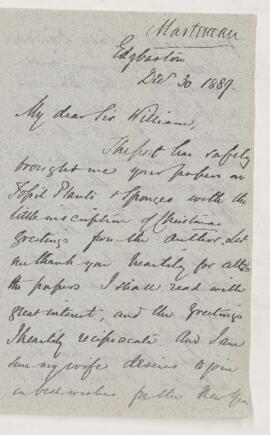 Martineau
Edgbaston
Dec 30 1889.
My dear Sir William,
The post has safely
brought me your papers on
Fossil Plants & Sponges with the
little inscription of Christmas
Greetings from the author. Let
me thank you heartily for all
the papers I shall read with
great interest, and the greetings
I heartily reciprocate And I am
sure my wife desires to join
in best wishes for the New Year